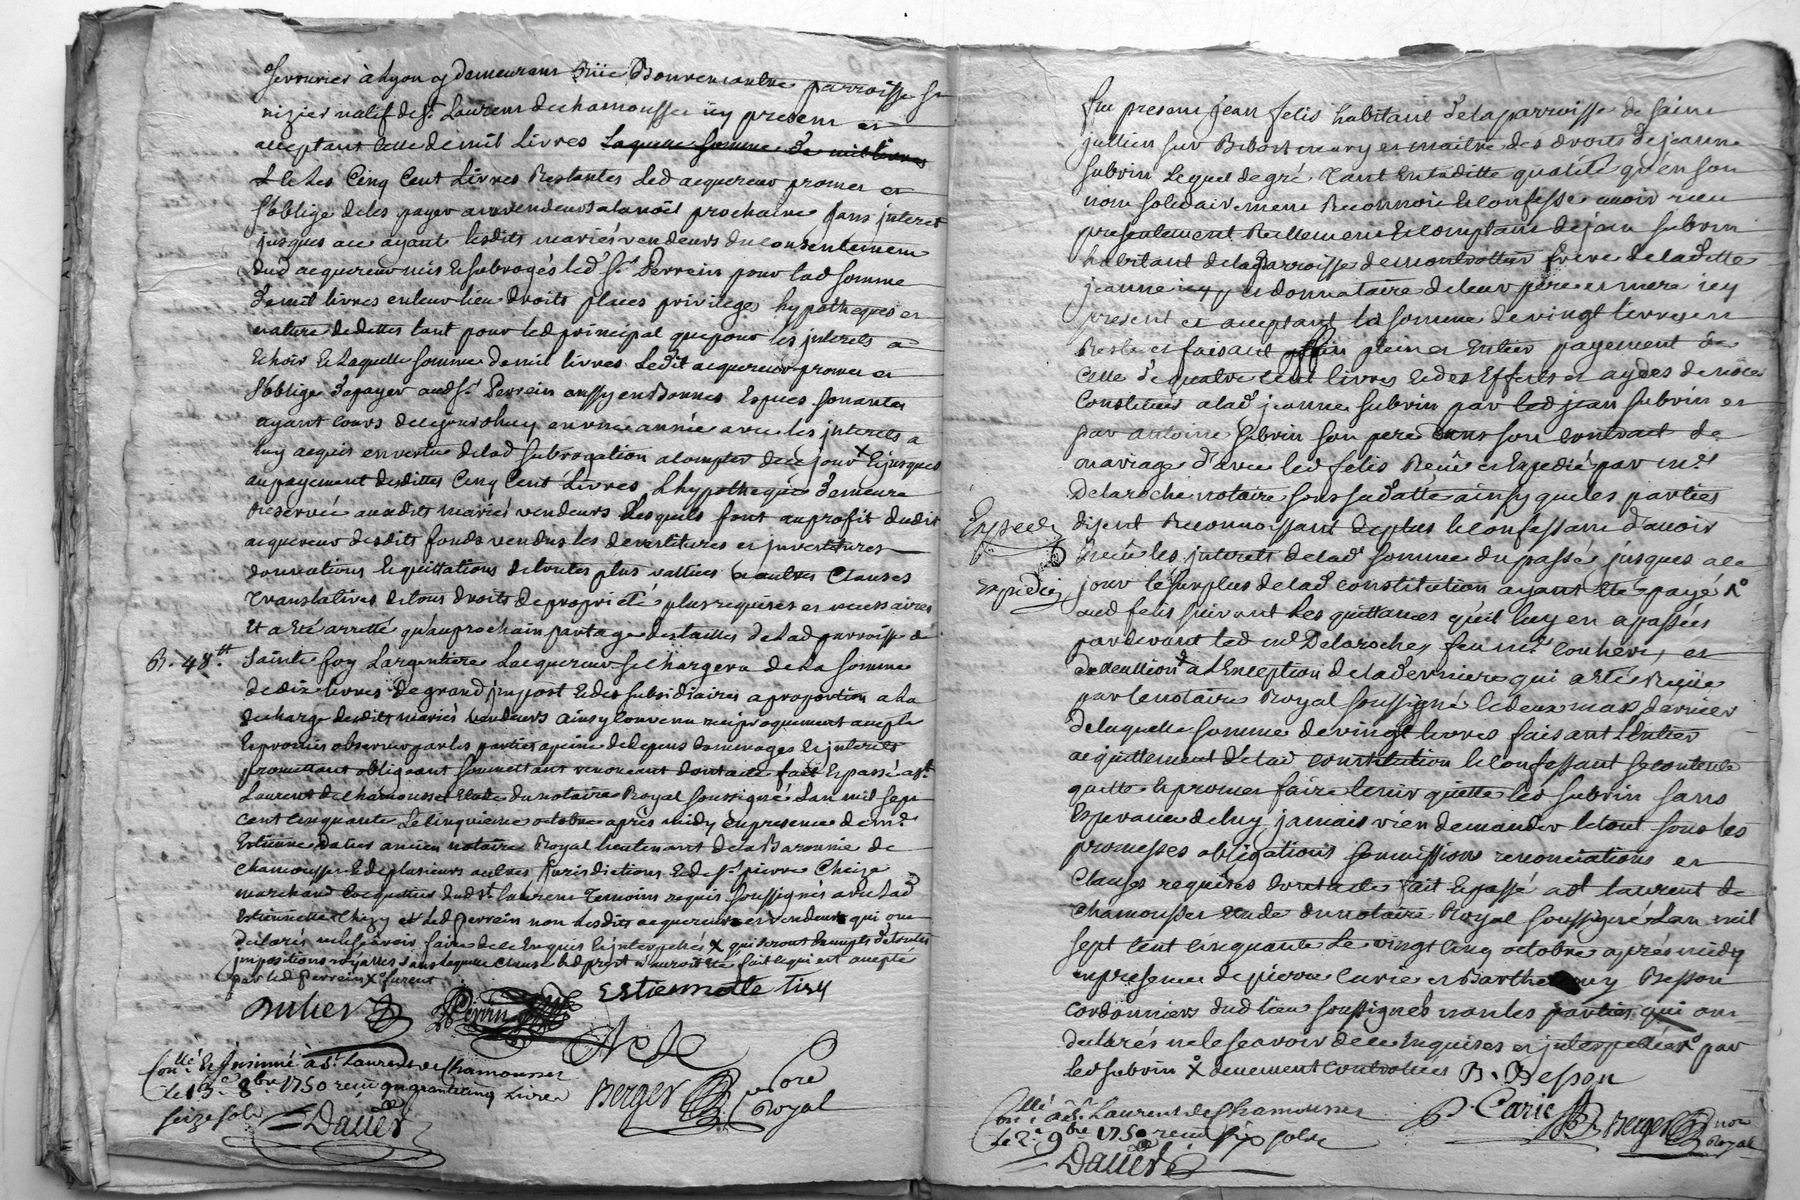 serrurier à Lyon y demeurant Rüe Bonrencontre parroisse st
nizier natif de st Laurent dechamousset icy present et
acceptant celle demil Livres Laquelle somme de mil livres
& les Cinq Cent Livres Restantes led acquereur promet et
s'oblige deles payer auxvendeurs alanoël prochaine sans interet
jusques ace ayant lesdits mariés vendeurs du consentement
dud acquereur mis & subrogés led sr Perrein pour lad somme
demil livres enleur lieu droits places privileges hypotheques et
nature dedettes tant pour led principal que pour les interets a
Echoir & Laquelle somme demil livres Ledit acquereur promet et
s'oblige depayer aud sr Perrein aussy en Bonnes Especes sonantes
ayant cours decejourdhuy en une année avec les interets a
luy acquis envertu delad subrogation acompter dece jour x & jusques
aupayement desdittes Cinq Cent Livres Lhypotheque demeure
reservée auxdits mariés vendeurs Lesquels font auprofit dudit
acquereur desdits fonds vendus les devestitures et investitures
donnations & quittations detoutes plus vallües & autres Clauses
Translatives detous droits depropriété plus requises et necessaires
Et a Eté arretté qu'auprochain partage destailles de lad parroisse de
R. 48.tt
Sainte foy Largentiere Lacquereur se chargera de la somme
dedix livres de grand impost & des subsidiaires a proportion a la
decharge desdits mariés vendeurs ainsy convenu reciproquement accepté
& promis observer par les parties apeine dedepens dommages & interets
promettant obligeant soumettant renonceant dontacte fait & passé a st
Laurent de chamousset Etude du notaire Royal soussigné Lan mil sept
cent cinquante Le cinquieme octobre après midy en presence de me
Estienne ancien notaire Royal lieutenant dela Baronnie de
chamousset & de plusieurs autres Jurisdictions & de sr pierre Cheize
marchand dud st laurent Temoins requis soussignés avec lad
Estiennette et led Perrein non lesdits acquereur et vendeurs qui ont
declarés nelesçavoir faire dece Enquis & interpellés x qui seront Exempts detoutes
impositions royalles sans laquelle clause led prest n'auroit Eté fait cequi est accepté
par led Perrein x furent
Perrin
Estiennette
Berger
nore
Royal
Conllé & Insinué à St. Laurent de Chamousset
le 13e 8bre 1750 reçu quarante cinq Livres
seize sols
Dauer
fut present jean felis habitant delaparroisse de saint
jullien sur Bibost mary et maitre des droits dejeanne
subrin Lequel degré Tant enladitte qualité qu'en son
nom solidairement Reconnoit & confesse avoir reçu
presentement Réellement & comptant de jean subrin
habitant delaparroisse demontrottier frere deladitte
jeanne et donnataire deleur pere et mere icy
present et acceptant la somme devingt livres en
Reste et faisant plein et Entier payement de
celle de quatre cent livres & des Effets et aydes de nôces
Constitués a lad jeanne subrin par led jean subrin et
par antoine subrin son pere dans son contract de
mariage d'avec led felis Reçu et Expedié par me
Delaroche notaire sous sadatte ainsy que les parties
Expedié
disent Reconnoissant deplus & confessant d'avoir
Reçu les interets delad somme du passé jusques ace
expedié
jour le surplus delad constitution ayant Eté payé xo
aud felis suivant Les quittances qu'il luy en a passées
pardevant led me Delaroche, feu me conhere, et
a L'Exception deladerniere qui a eté Reçüe
par lenotaire Royal soussigné ledeux may dernier
delaquelle somme devingt livres faisant L'entier
acquittement delad constitution & confessant secontente
quitte & promet faire tenir quitte led subrin sans
Esperance deluy jamais rien demander letout sous les
promesses obligations soumissions renonciations et
Clauses requises dontacte fait & passé a st laurent de
Chamousset Etude du notaire Royal soussigné Lan mil
sept cent cinquante Le vingt cinq octobre après midy
enpresence de pierre Carie et Barthelemy Besson
cordonniers dud lieu soussignés non les parties qui ont
declarés nelesçavoir dece Enquises et interpellées par
led subrin x
B. Besson
P. Carie
Berger
nore
Royal
Conllé à St. Laurent de Chamousset
le 2e 9bre 1750 reçu six sols
Dauer